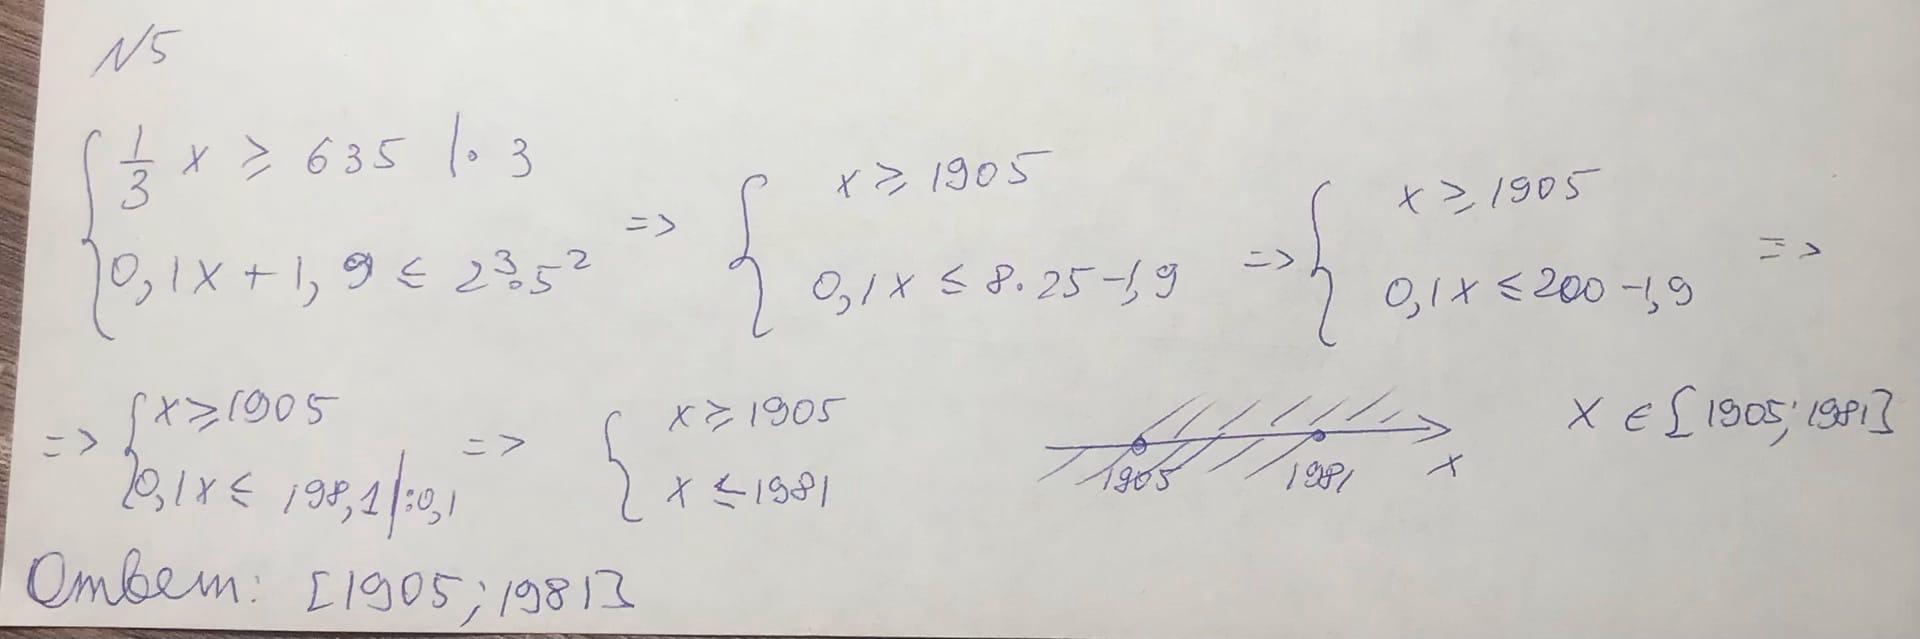 N5
{ 1/3 x ≥ 635 |· 3
0,1x + 1,9 ≤ 2³·5² => { x ≥ 1905
0,1x ≤ 8·25-1,9 => { x ≥ 1905
0,1x ≤ 200-1,9 =>
=> { x ≥ 1905
0,1x ≤ 198,1 |:0,1 => { x ≥ 1905
x ≤ 1981
1905 1981 x
x ∈ [1905; 1981]
Ответ: [1905; 1981]